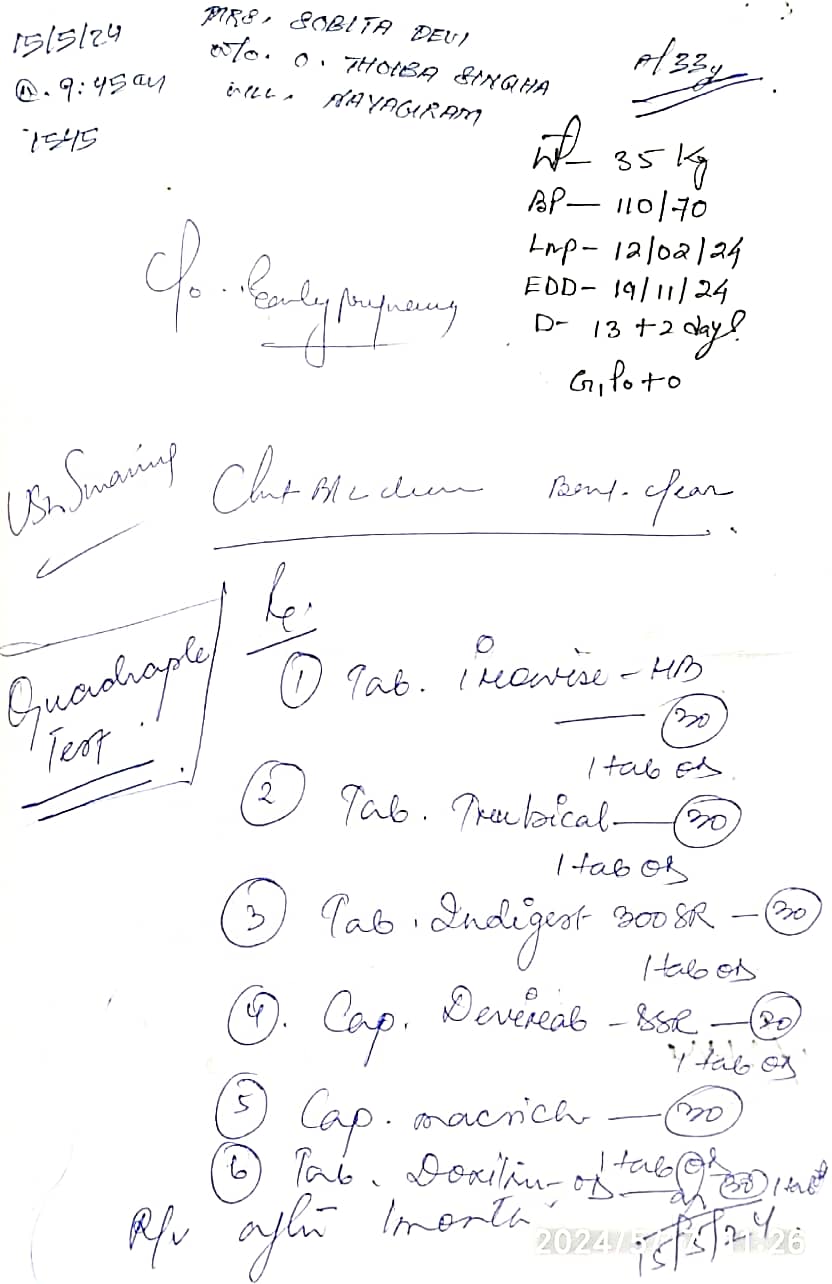 15/5/24
@. 9:45 am
1545
MRS. SOBITA DEVI
W/o. O. THOIBA SINGHA
VILL. NAYAGRAM
A/33y
Wt- 35 kg
BP- 110/70
Lmp- 12/02/24
EDD- 19/11/24
D- 13 +2 days
G1P0+0
C/o. Early pregnancy
Clear
Quadraple
Test
Rx.
① Tab. - HB
— 30
1 tab OD
② Tab. — 30
1 tab OD
③ Tab. Indigest 300 SR — 30
1 tab OD
④. Cap. - SSR — 30
1 tab OD
⑤ Cap. macrich — 30
1 tab OD
⑥ Tab. - OD — 30 1 tab
R/v after 1 month
15/5/24